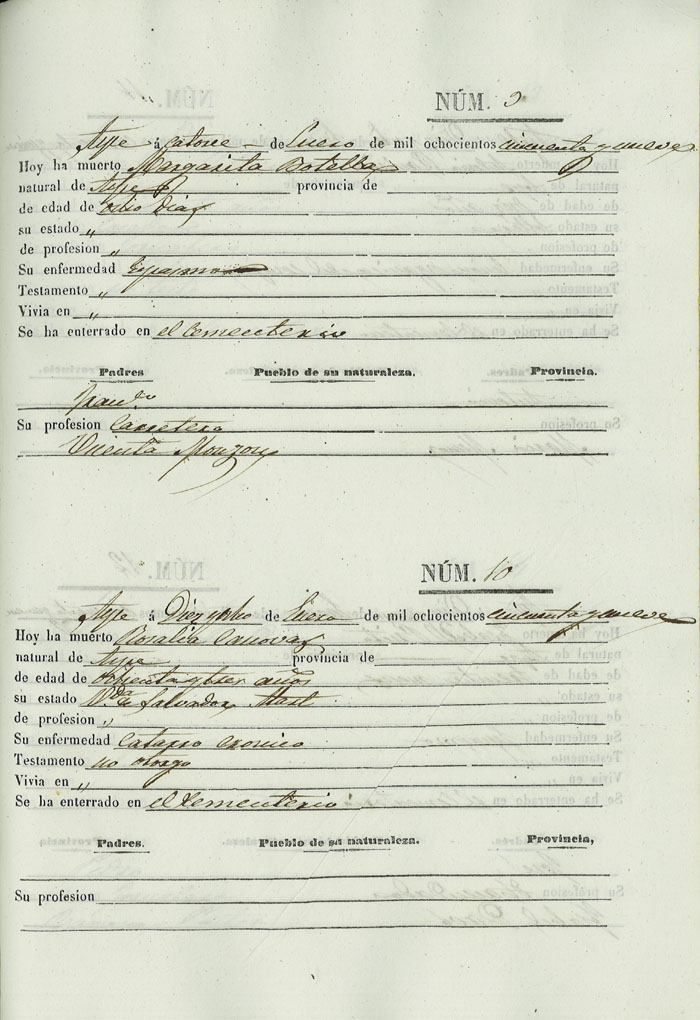 NÚM. 9
Aspe á catorce de Enero de mil ochocientos cincuenta y nueve
Hoy ha muerto Margarita Botella
natural de Aspe provincia de
de edad de ocho dias
su estado „
de profesion „
Su enfermedad Espasmo
Testamento „
Vivia en „
Se ha enterrado en el Cementerio
Padres Pueblo de su naturaleza. Provincia.
Franco
Su profesion Carretero
Vicenta Monzon
NÚM. 10
Aspe á Diez y ocho de Enero de mil ochocientos cincuenta y nueve
Hoy ha muerto Rosalia Canovas
natural de Aspe provincia de
de edad de ochenta y tres años
su estado V.da de Salvador
de profesion „
Su enfermedad Catarro cronico
Testamento no otorgo
Vivia en „
Se ha enterrado en el Cementerio
Padres. Pueblo de su naturaleza. Provincia,
Su profesion